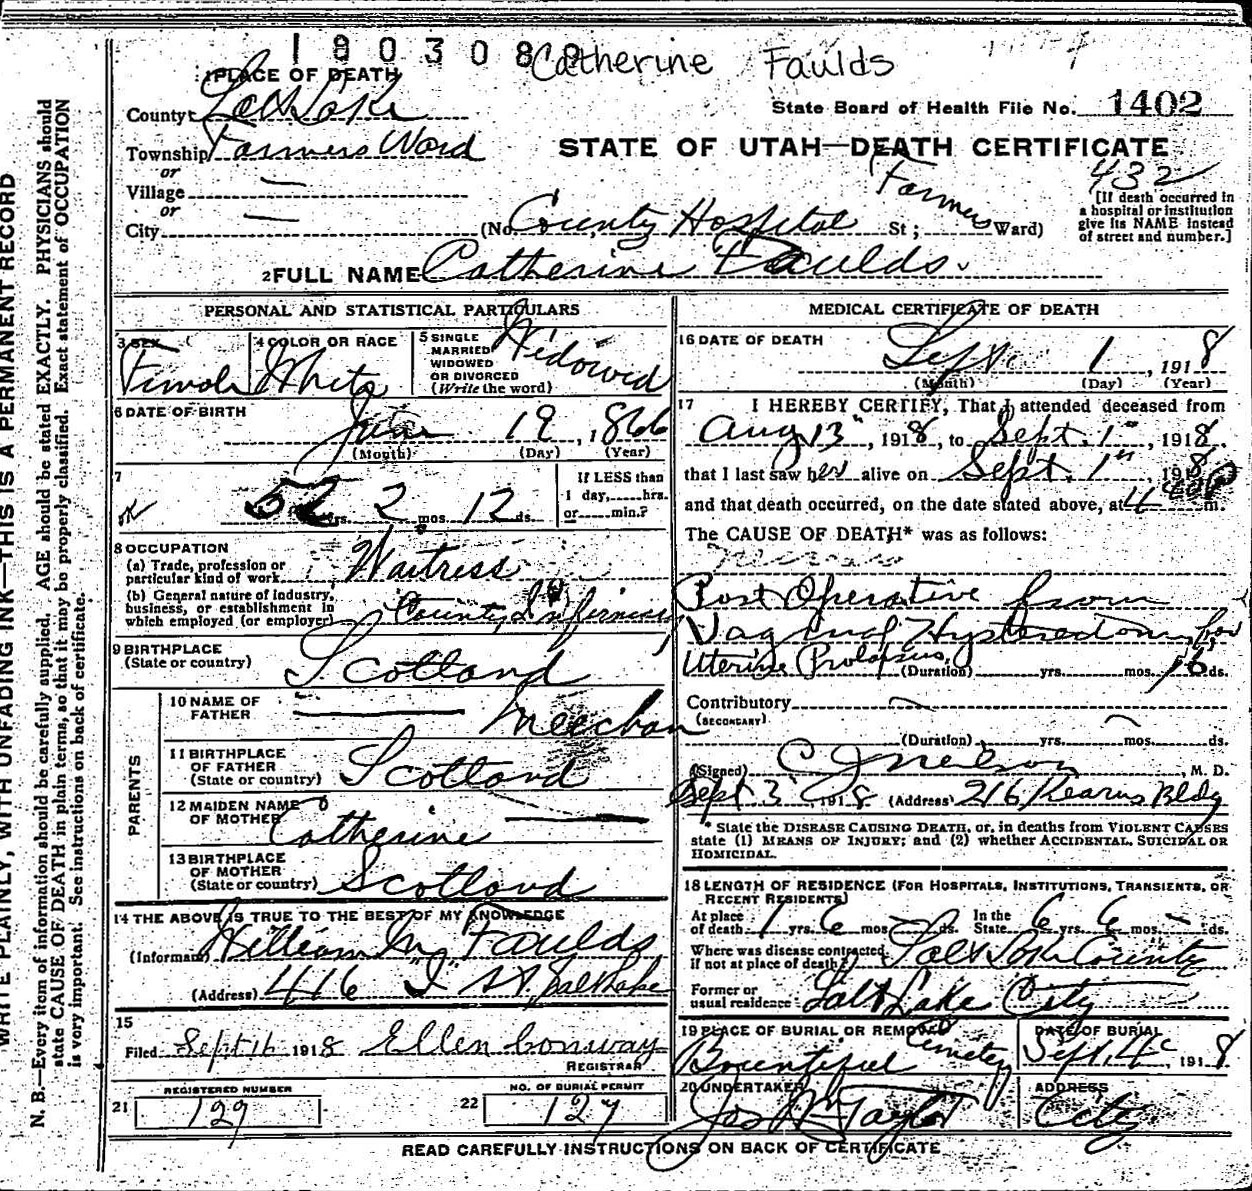 180308
Catherine Faulds
1 PLACE OF DEATH
County Salt Lake
State Board of Health File No. 1402
Township Farmers Ward
or
STATE OF UTAH—DEATH CERTIFICATE
432
Village —
or
City — (No. County Hospital St; Farmers Ward)
[If death occurred in a hospital or institution give its NAME instead of street and number.]
2 FULL NAME Catherine Faulds.
PERSONAL AND STATISTICAL PARTICULARS
3 SEX Female
4 COLOR OR RACE White
5 SINGLE MARRIED WIDOWED OR DIVORCED (Write the word) Widowed
6 DATE OF BIRTH June 19, 1866
(Month) (Day) (Year)
7 52 yrs. 2 mos. 12 ds.
If LESS than 1 day, hrs. or min.?
ok
8 OCCUPATION
(a) Trade, profession or particular kind of work Waitress
(b) General nature of industry, business, or establishment in which employed (or employer) County Infirmary
9 BIRTHPLACE (State or country) Scotland
PARENTS
10 NAME OF FATHER — Meechan
11 BIRTHPLACE OF FATHER (State or country) Scotland
12 MAIDEN NAME OF MOTHER Catherine —
13 BIRTHPLACE OF MOTHER (State or country) Scotland
14 THE ABOVE IS TRUE TO THE BEST OF MY KNOWLEDGE
(Informant) William M Faulds
(Address) 416 I St, Salt Lake
15
Filed Sept 16 1918 Ellen Conway
REGISTRAR
21 REGISTERED NUMBER 129
22 NO. OF BURIAL PERMIT 127
MEDICAL CERTIFICATE OF DEATH
16 DATE OF DEATH Sept. 1, 1918
(Month) (Day) (Year)
17 I HEREBY CERTIFY, That I attended deceased from
Aug 13", 1918, to Sept. 1", 1918,
that I last saw her alive on Sept. 1st 1918
and that death occurred, on the date stated above, at m.
The CAUSE OF DEATH* was as follows:
Post Operative from
Vaginal Hysterectomy for
Uterine Prolapsus, (Duration) yrs. mos. 16 ds.
Contributory —
(SECONDARY)
(Duration) yrs. mos. ds.
(Signed) C J Neilson, M. D.
Sept 3 1918 (Address) 216 Kearns Bldg
* State the DISEASE CAUSING DEATH, or, in deaths from VIOLENT CAUSES
state (1) MEANS OF INJURY; and (2) whether ACCIDENTAL, SUICIDAL OR
HOMICIDAL.
18 LENGTH OF RESIDENCE (FOR HOSPITALS, INSTITUTIONS, TRANSIENTS, OR RECENT RESIDENTS)
At place of death 1 yrs. 6 mos. — ds. In the State 6 yrs. 6 mos. — ds.
Where was disease contracted, if not at place of death? Salt Lake County
Former or usual residence Salt Lake City
19 PLACE OF BURIAL OR REMOVAL Bountiful Cemetery
DATE OF BURIAL Sept. 4, 1918
20 UNDERTAKER Jos Wm Taylor
ADDRESS City
READ CAREFULLY INSTRUCTIONS ON BACK OF CERTIFICATE
WRITE PLAINLY, WITH UNFADING INK—THIS IS A PERMANENT RECORD
N. B.—Every item of information should be carefully supplied. AGE should be stated EXACTLY. PHYSICIANS should
state CAUSE OF DEATH in plain terms, so that it may be properly classified. Exact statement of OCCUPATION
is very important. See instructions on back of certificate.